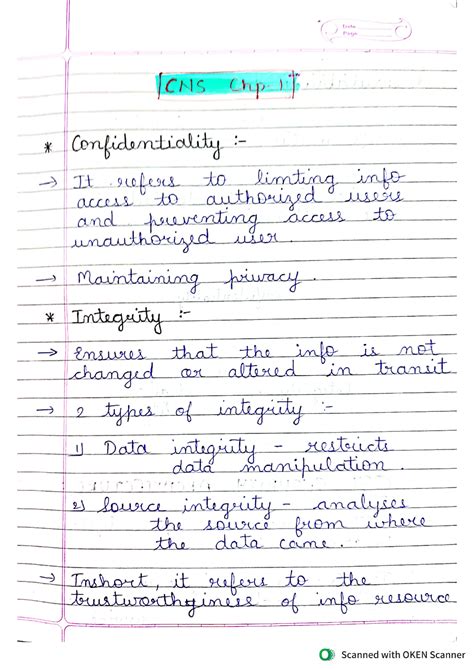 Date
Page
CNS Chp 1
* Confidentiality :-
→ It refers to limting info
access to authorized users
and preventing access to
unauthorized user.
→ Maintaining privacy.
* Integrity :-
→ Ensures that the info is not
changed or altered in transit
→ 2 types of integrity :-
1) Data integrity - restricts
data manipulation.
2) Source integrity - analyses
the source from where
the data came.
→ Inshort, it refers to the
trustworthginess of info resource
Scanned with OKEN Scanner